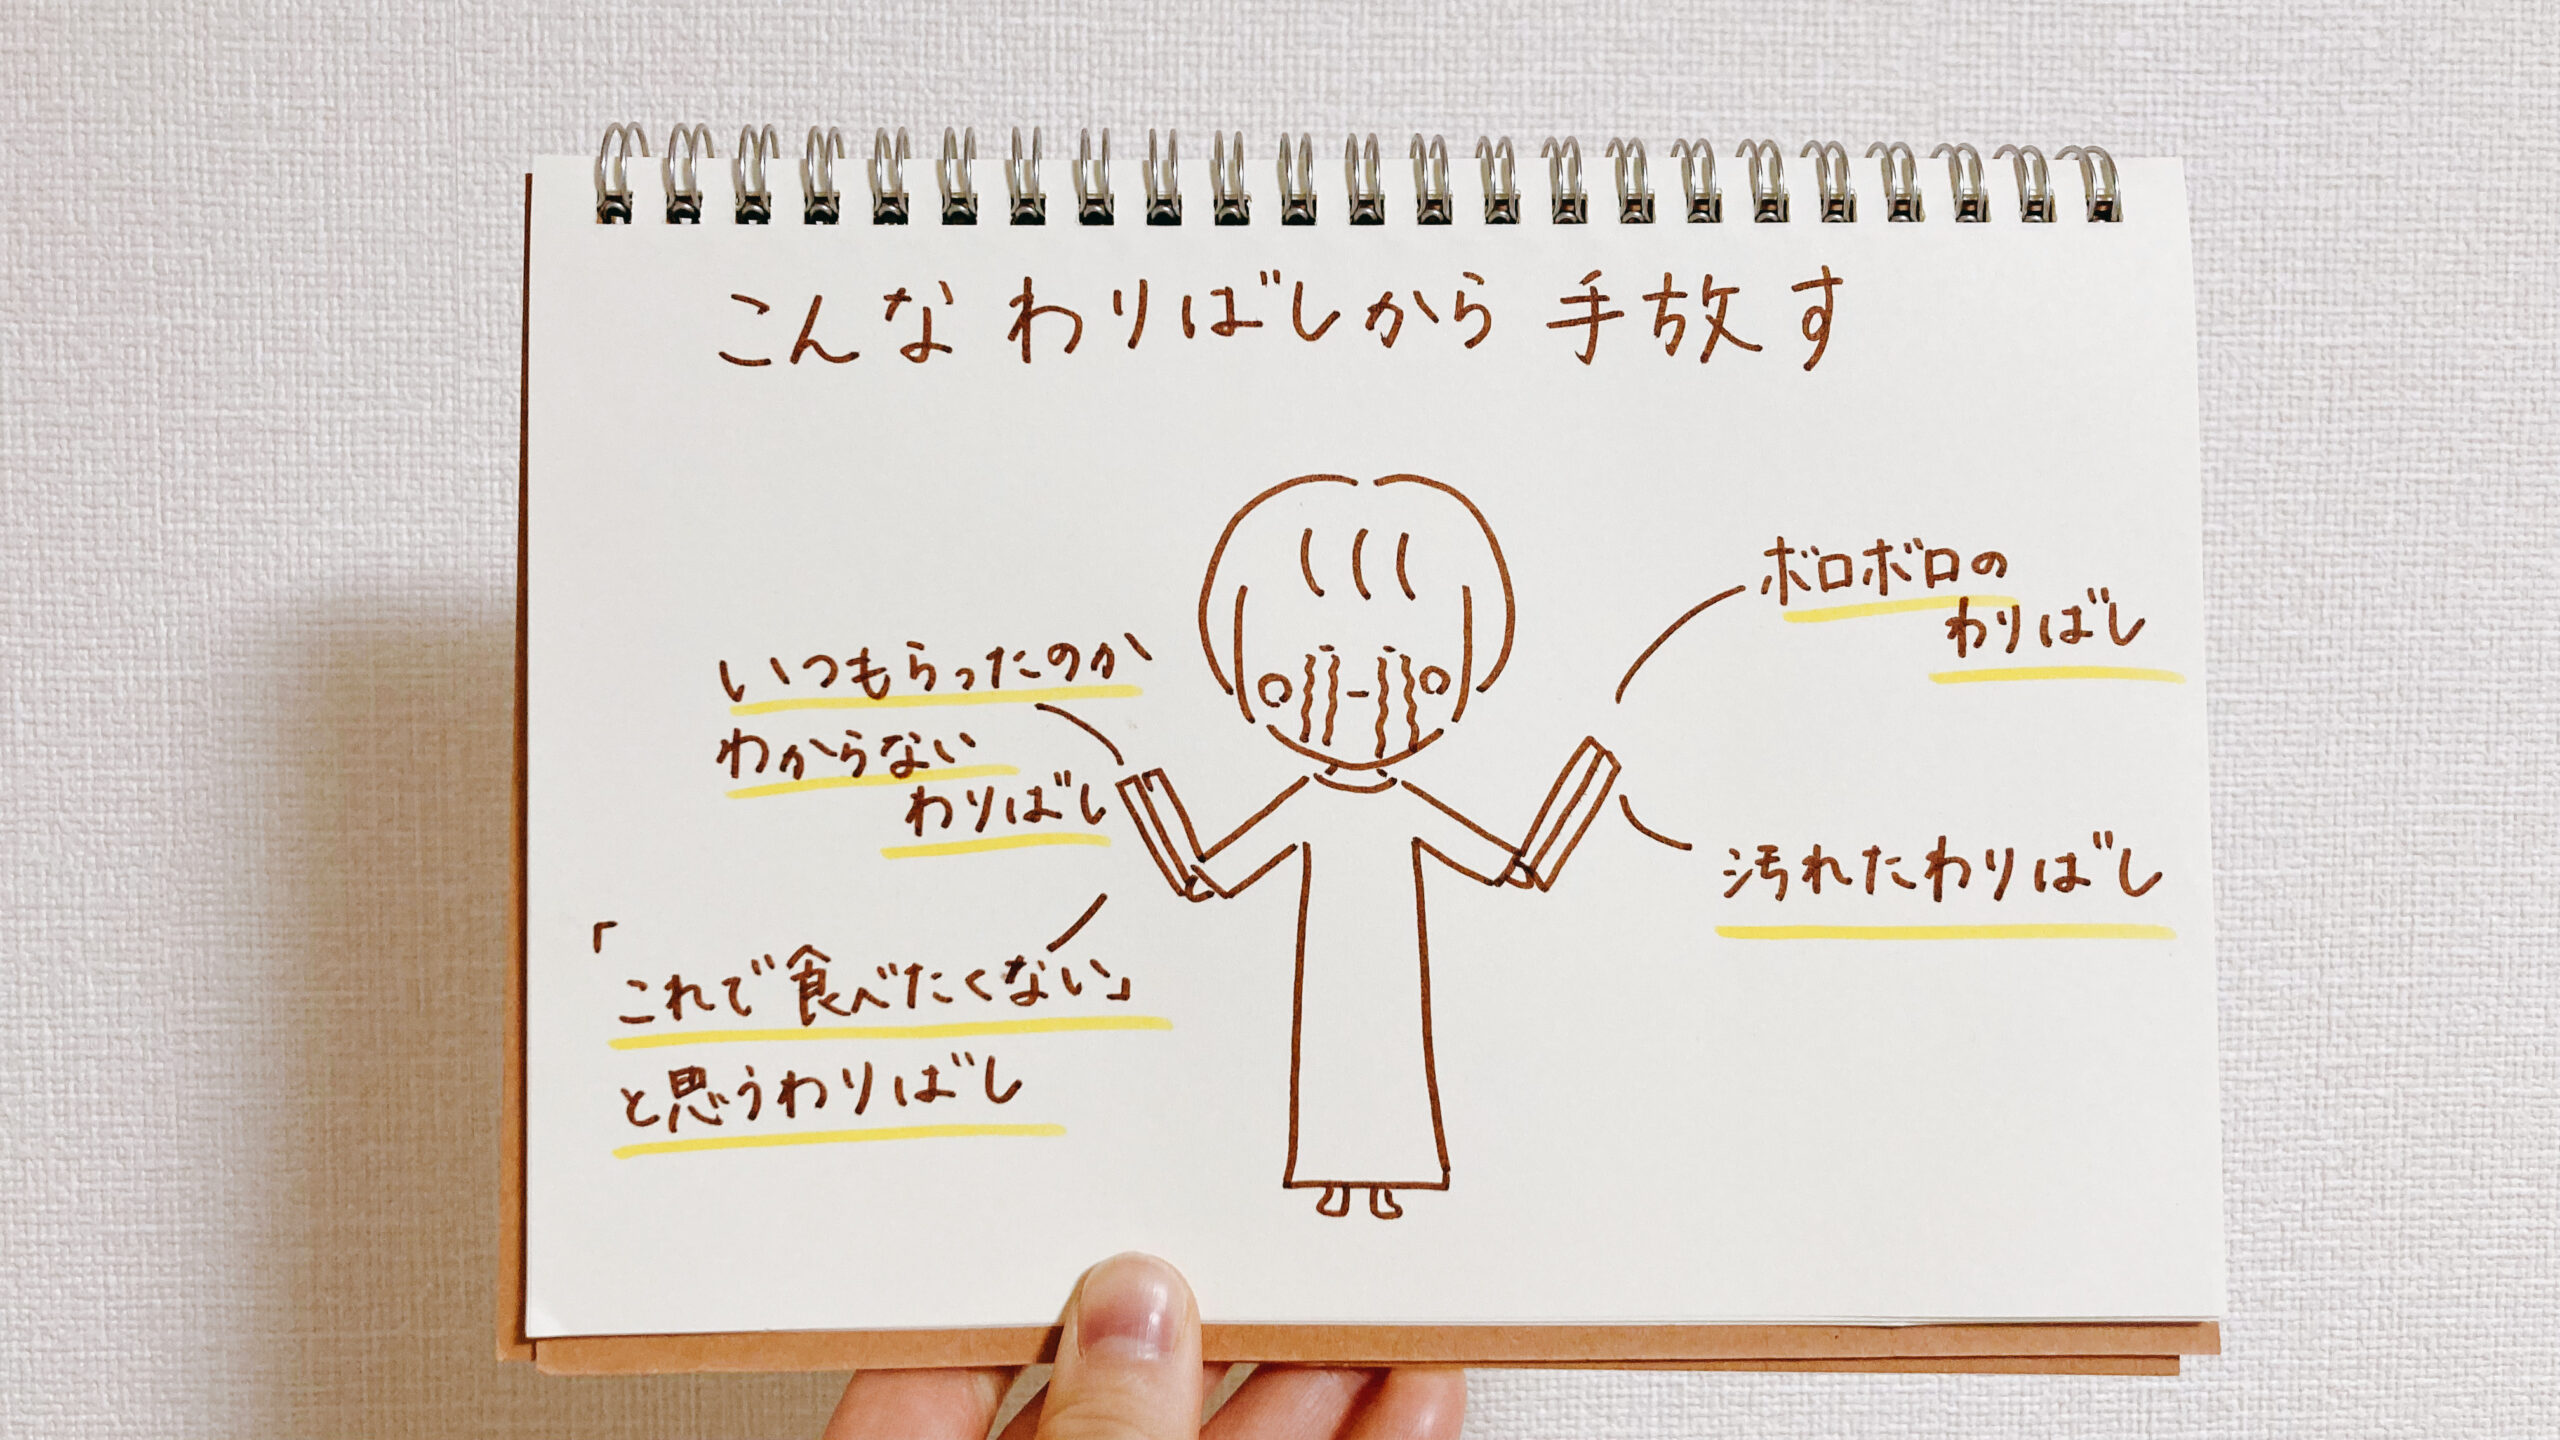 こんなわりばしから手放す
いつもらったのか
わからない
わりばし
「これで食べたくない」
と思うわりばし
ボロボロの
わりばし
汚れたわりばし